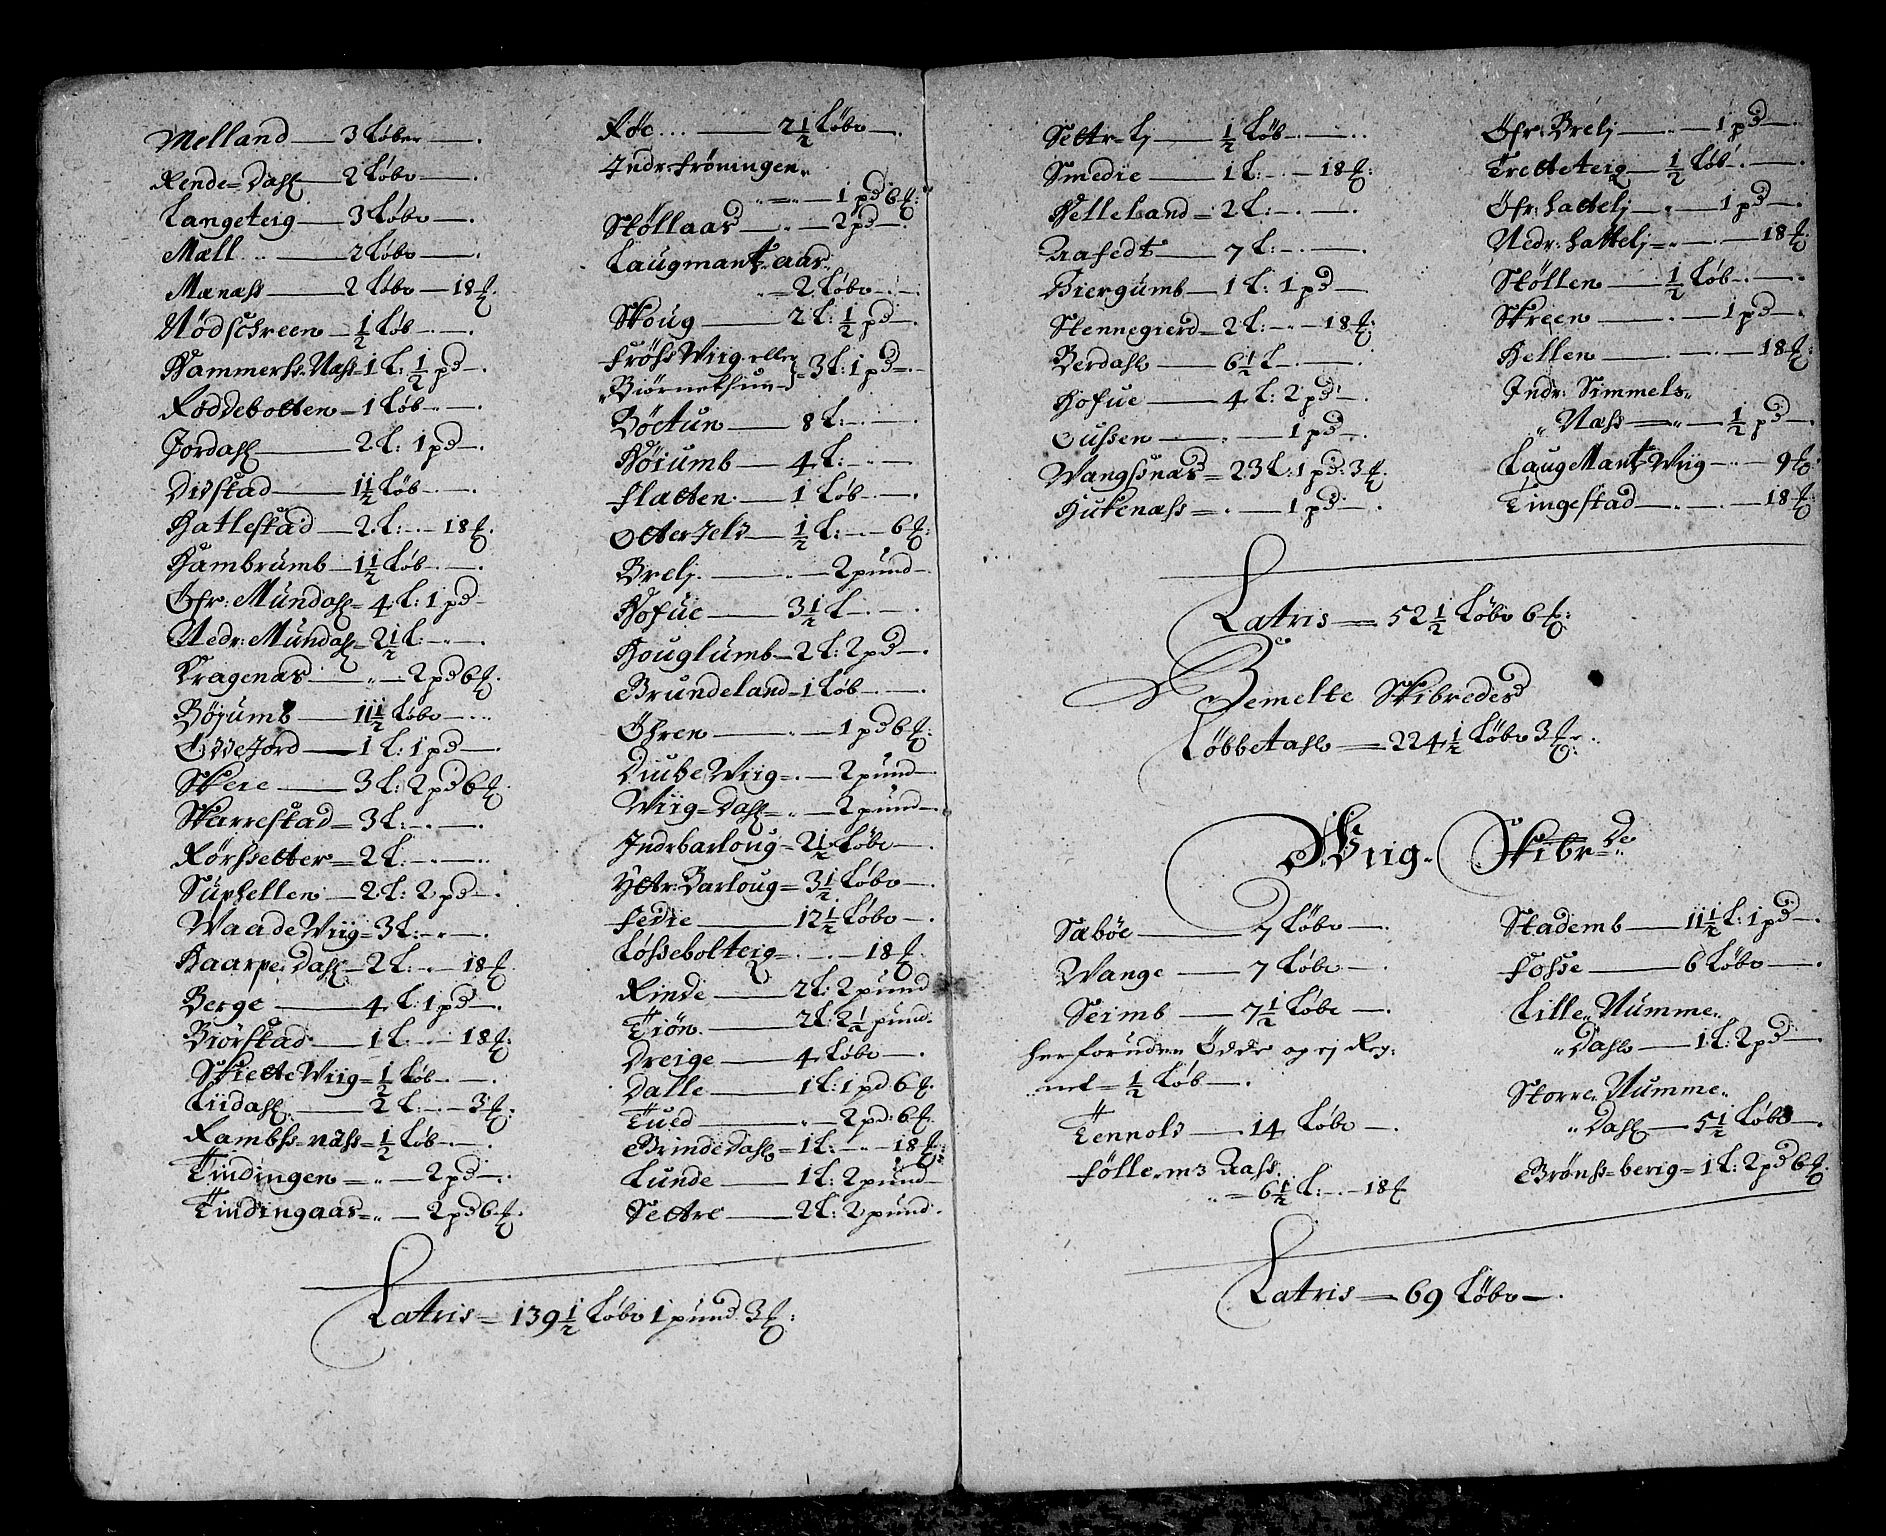 Melland — 3 Løber —
Rende=Dahl — 2 Løbe —
Langeteig — 3 Løbe —
Mæll — 2 Løbe —
Menæss — 2 Løbe — 18 ℔.
Nødschreen — ½ Løb —
Hammerss Næss = 1 L: ½ pd —
Røddebotten — 1 Løb —
Jordahl — 2 L: 1 pd —
Didstad — 1½ Løb —
Hatlestad — 2 L: — 18 ℔.
Hambrumb — 1½ Løb —
Øfr: Mundahl = 4 L: 1 pd —
Nedr: Mundahl = 2½ L: —
Kragenæs — „ — 2 pd 6 ℔.
Bøjumb — 11½ Løbe —
Oddefiord — 1 L: 1 pd —
Skeie — 3 L: 2 pd 6 ℔.
Skarrestad = 3 L: —
Rørssetter = 2 L: —
Suphellen — 2 L: 2 pd —
WaadeWiig = 3 L: —
Haarpe Dahl — 2 L: — 18 ℔.
Berge — 4 L: 1 pd —
Biørstad — 1 L: — 18 ℔.
SkietteWiig = ½ Løb —
Liidahl — 2 L: — 3 ℔.
Rambss næss = ½ Løb —
Tindingen — „ — 2 pd —
Tindingaar = „ — 2 pd 6 ℔.
Røe — 2½ Løbe —
Indr: Frøningen „
„ = „ — 1 pd 6 ℔:
Skøllaar — 2 pd —
Laugmants aar
„ = 2 Løbe —
Skoug — 2 L: ½ pd —
Frøss Wiig eller
Biørnekhun } = 3 L: 1 pd =
Bøetun — 8 L: —
Høiumb — 4 L: —
Flatten — 1 Løb —
Otterfeld — ½ L: — 6 ℔:
Brelj — „ — 2 pund —
Hofue — 3½ L —
Houglumb — 2 L: 2 pd —
Brundeland = 1 Løb —
Öhren — 1 pd 6 ℔:
DiubeWiig = — 2 pund —
Wiig = Dahl = „ — 2 pund —
Indrbarloug = 2½ Løbe —
Yttr: Barloug = 3½ Løbe —
Fedie — 12½ Løbe —
Løssebolteig = — 18 ℔.
Rinde — 2 L: 2 pund
Tiøn — 2 L: 2½ pund.
Dreige — 4 Løbe —
Dalle — 1 L: 1 pd 6 ℔.
Tued — „ — 2 pd: 6 ℔.
Grinde Dahl = 1 L: — 18 ℔:
Lunde — 1 L: 2 pund —
Settre — 2 L: 2 pund.
Latris = 139½ Løbe 1 pund 3 ℔:
Settr=lj — ½ Løb —
Smedie — 1 L: — 18 ℔:
Helleland = 2 L: —
Aafedt — 7 L: —
Biergumb — 1 L: 1 pd —
Stennegierd = 2 L: — 18 ℔:
Berdahl — 6½ L —
Hofue — 4 L: 2 pd —
Oussen — 1 pd —
Wangssnæs = 23 L: 1 pd: 3 ℔.
Hukenæss = — 1 pd —
Öfr: Brelj — 1 pd —
Tretteteig — ½ Løb —
Öfr: hattelj — 1 pd —
Nedr: hattelj = „ — 18 ℔.
Støllen — ½ Løb —
Skreen — 1 pd —
Hellen — 18 ℔:
Indr: Simmels „
„ Næss = „ — ½ pd —
LaugMants Wiig — 9 ℔
Tingestad — 18 ℔:
Latris = 52½ Løbe 6 ℔:
Bemelte Skibredes
Løbbetahl = 224½ Løbe 3 ℔:
Wiig. Skibrde
Sæbøe — 7 Løbe —
Wange — 7 Løbe —
Seimb — 7½ Løbe —
herforuden Ödde og ej Reg:
net = ½ Løb —
Tennold — 14 Løbe —
Følle, m3 Aass.
„ = 6½ L: — 18 ℔
Stademb — 11½ L: 1 pd —
Fosse — 6 Løbe —
Lille „ Numme „
„ Dahl — 1 L: 2 pd —
Storre „ Numme „
„ Dahl — 5½ Løbe —
Brønss=berig = 1 L: 2 pd 6 ℔.
Latris — 69 Løbe —